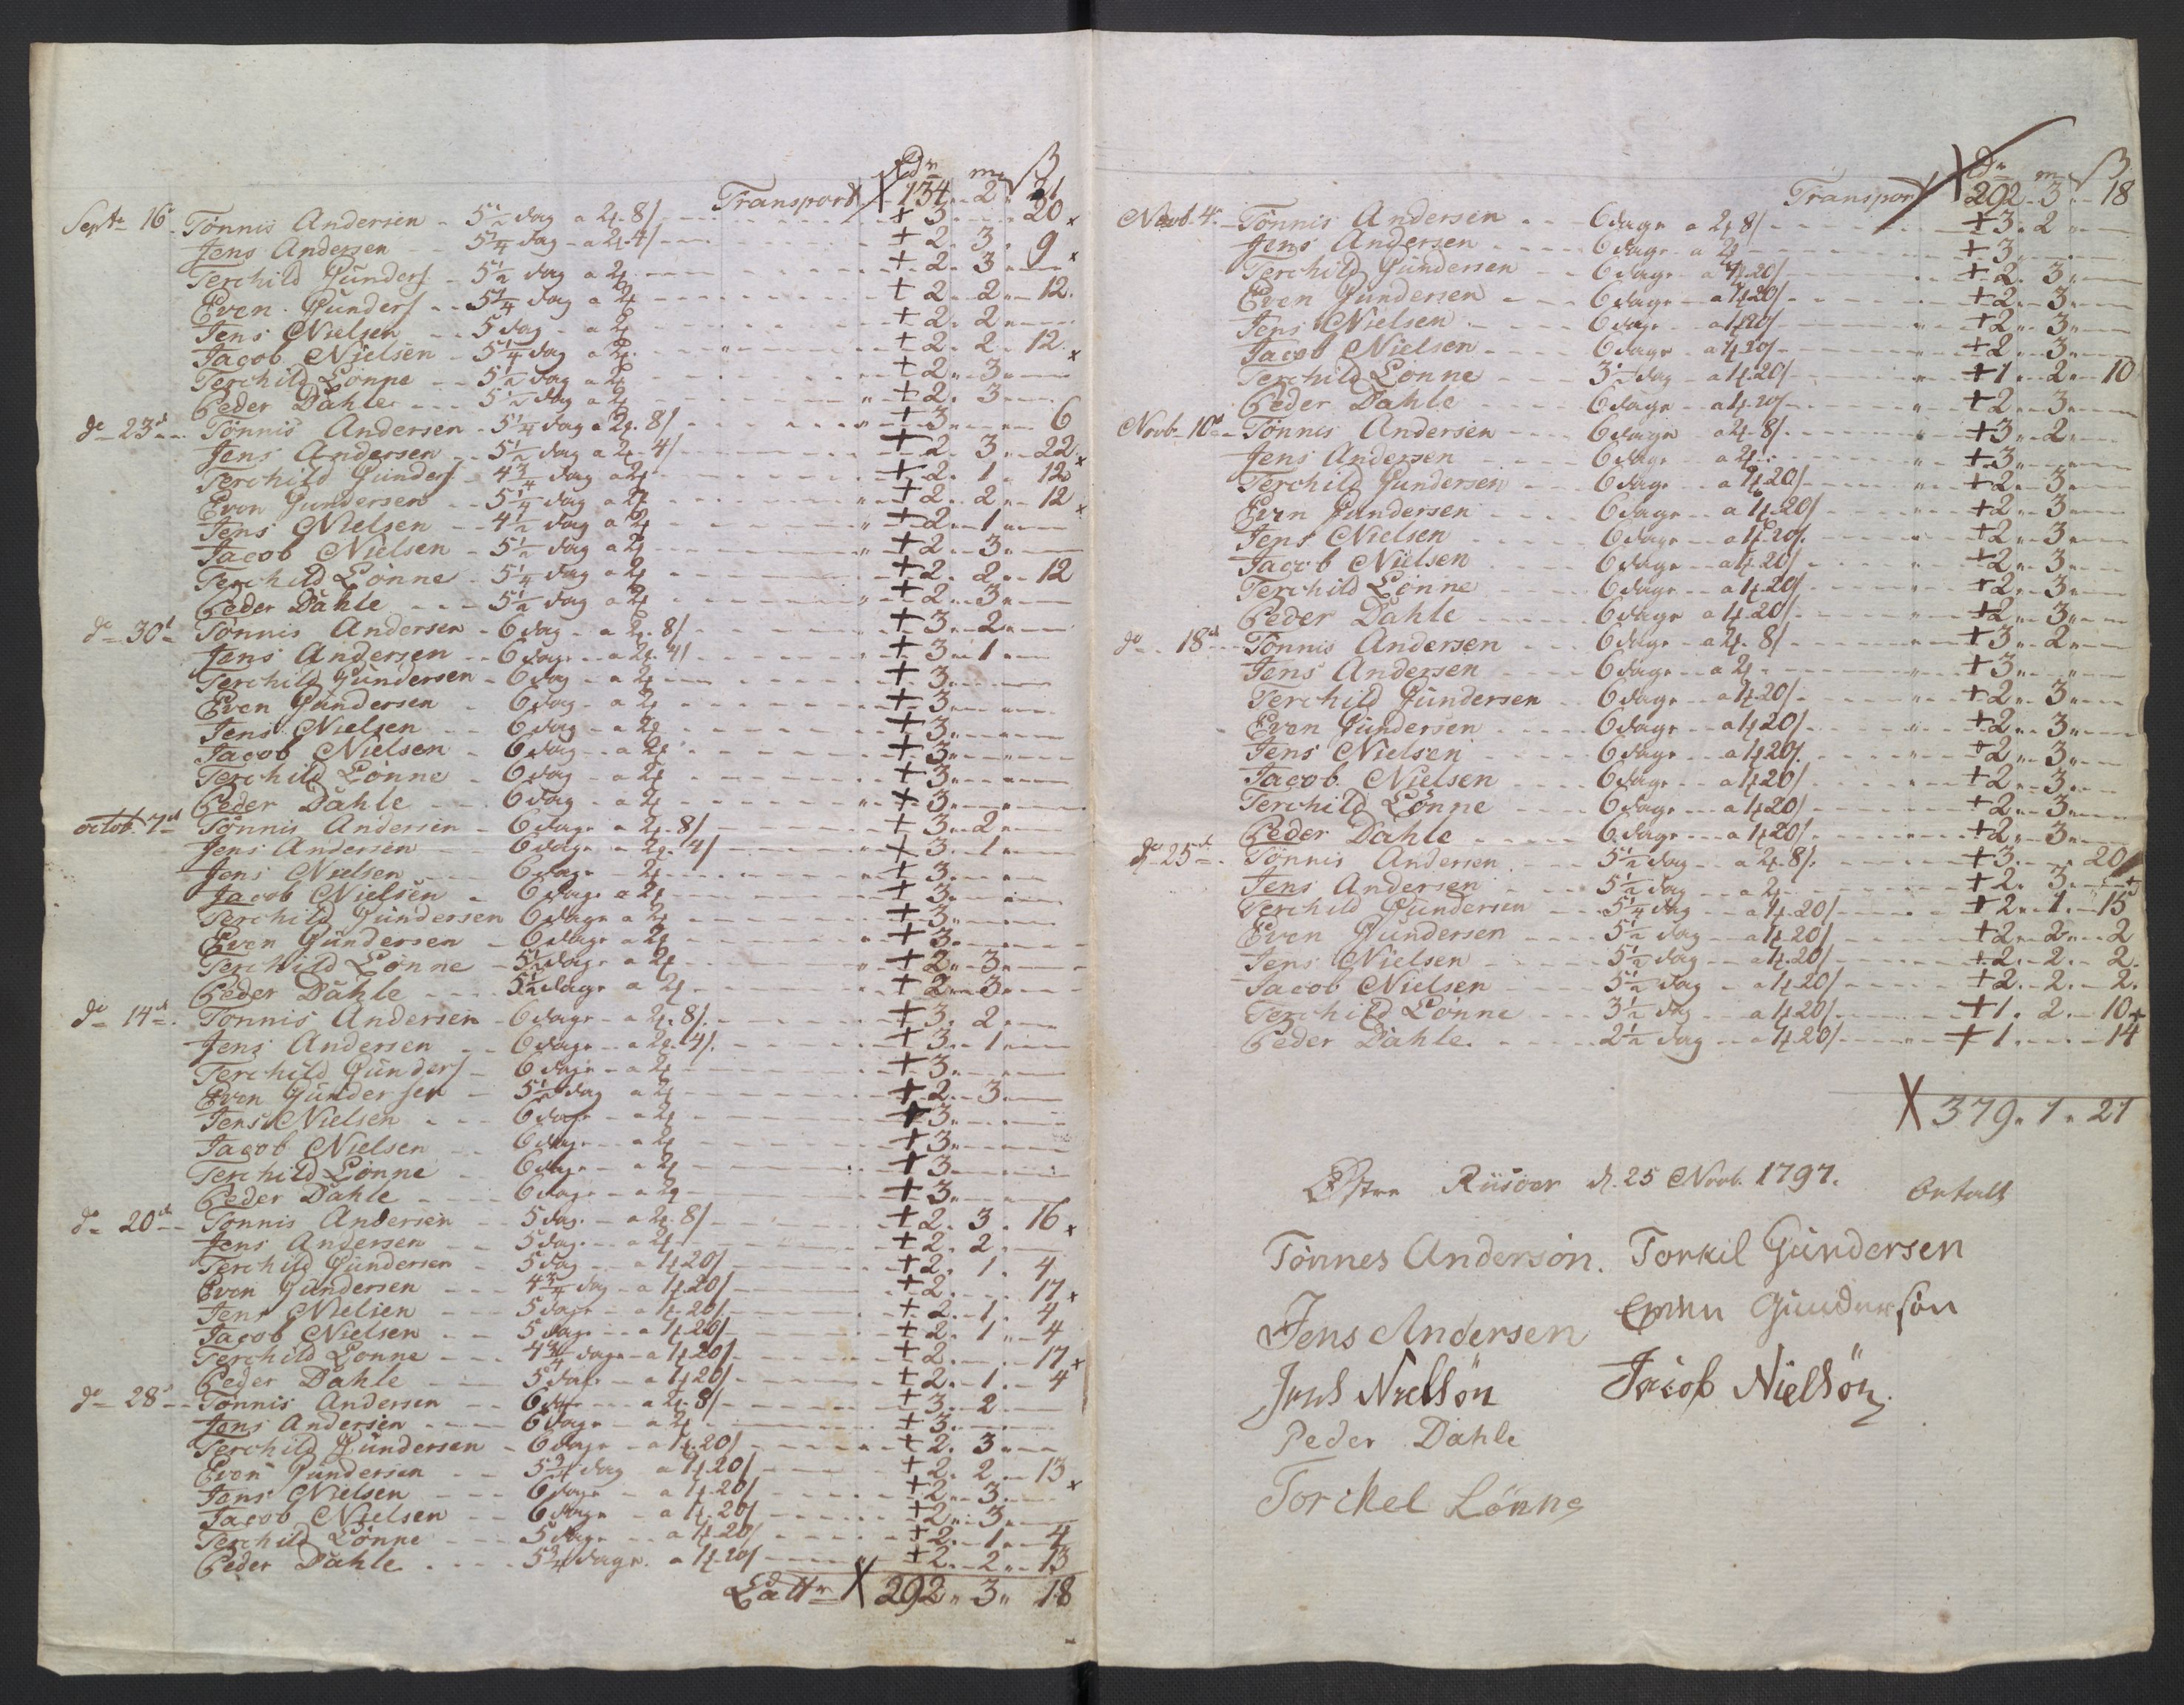 Rdr m ß
Transport 134 .. 2 .. 21
Septr 16 Tönnis Andersen - 5½ dag a 2 . 8/ + 3 . . 20
Jens Andersen - 5¼ dag - a 2 . 4/ + 2 . 3 . 9
Terchild Gunders - 5½ dag a 2 + 2 . 3
Even Gunders - 5¼ dag a 2 + 2 . 2 . 12
Jens Nielsen - 5 dag - a 2 + 2 . 2
Jacob Nielsen - 5¼ dag a 2 + 2 . 2 . 12
Terchild Lönne - 5½ dag a 2 + 2 . 3
Peder Dahle - 5½ dag a 2 + 2 . 3
do 23d Tönnis Andersen - 5¼ dag a 2 . 8/ + 3 . . 6
Jens Andersen - 5½ dag a 2 . 4/ + 2 . 3 . 22
Terchild Gunders - 4¾ dag a 2 + 2 . 1 . 12
Even Gundersen - 5¼ dag a 2 + 2 . 2 . 12
Jens Nielsen - 4½ dag a 2 + 2 . 1
Jacob Nielsen - 5½ dag a 2 + 2 . 3
Terchild Lönne - 5¼ dag a 2 + 2 . 2 . 12
Peder Dahle - 5½ dag a 2 + 2 . 3
do 30d Tönnis Andersen - 6 dag - a 2 . 8/ + 3 . 2
Jens Andersen - 6 dage - a 2 . 4/ + 3 . 1
Terchild Gundersen - 6 dag - a 2 + 3
Even Gundersen - 6 dag - a 2 + 3
Jens Nielsen - 6 dag - a 2 + 3
Jacob Nielsen - 6 dag - a 2 + 3
Terchild Lönne - 6 dag - a 2 + 3
Peder Dahle - 6 dag - a 2 + 3
octob. 7d Tönnis Andersen - 6 dage a 2 . 8/ + 3 . 2
Jens Andersen - 6 dage a 2 . 4/ + 3 . 1
Jens Nielsen - 6 dage - 2 + 3
Jacob Nielsen - 6 dage a 2 + 3
Terchild Gundersen 6 dage a 2 + 3
Even Gundersen - 6 dage a 2 + 3
Terchild Lönne - 5½ dage a 2 + 2 . 3
Peder Dahle - 5½ dage a 2 + 2 . 3
do 14d Tönnis Andersen - 6 dage - a 2 . 8/ + 3 . 2
Jens Andersen - 6 dage - a 2 . 4/ + 3 . 1
Terchild Gunders - 6 dage - a 2 + 3
Even Gundersen - 5½ dag a 2 + 2 . 3
Jens Nielsen - 6 dage - a 2 + 3
Jacob Nielsen - 6 dage - a 2 + 3
Terchild Lönne - 6 dage - a 2 + 3
Peder Dahle - 6 dage - a 2 + 3
do 20d Tönnis Andersen - 5 dag - a 2 . 8/ + 2 . 3 . 16
Jens Andersen - 5 dage - a 2 + 2 . 2
Terchild Gundersen - 5 dag - a 1 . 20/ + 2 . 1 . 4
Even Gundersen - 4¾ dag - a 1 . 20/ + 2 . . 17
Jens Nielsen - 5 dage - a 1 . 20/ + 2 . 1 . 4
Jacob Nielsen - 5 dage - a 1 . 20/ + 2 . 1 . 4
Terchild Lonne - 4¾ dage - a 1 . 20/ + 2 . . 17
Peder Dahle - 5 dage - a 1 . 20/ + 2 . 1 . 4
do 28 Tönnis Andersen - 6 dage - a 2 . 8/ + 3 . 2
Jens Andersen - 6 dage - a 2 + 3
Terchild Gundersen - 6 dage - a 1 . 20/ + 2 . 3
Even Gundersen - 5¾ dag a 1 . 20/ + 2 . 2 . 13
Jens Nielsen - 6 dage - a 1 . 20/ + 2 . 3
Jacob Nielsen - 6 dage - a 1 . 20/ + 2 . 3
Terchild Lönne - 5 dage - a 1 . 20/ + 2 . 1 . 4
Peder Dahle - 5¾ dage . a 1 . 20/ + 2 . 2 . 13
Lattr X 292 .. 3 .. 18
Rdr m ß
Transport 292 . 3 . 18
Novb. 4 Tönnis Andersen - 6 dage a 2 . 8/ + 3 . 2
Jens Andersen - 6 dage - a 2 + 3
Terchild Gundersen - 6 dage - a 1 . 20/ + 2 . 3
Even Gundersen - 6 dage - a 1 . 20/ + 2 . 3
Jens Nielsen - 6 dage - a 1 . 20/ + 2 . 3
Jacob Nielsen - 6 dage - a 1 . 20/ + 2 . 3
Terchild Lonne - 3½ dag - a 1 . 20/ + 1 . 2 . 10
Peder Dahle - 6 dage - a 1 . 20/ + 2 . 3
Novb. 10d Tönnis Andersen - 6 dage a 2 . 8/ + 3 . 2
Jens Andersen - 6 dage a 2 + 3
Terchild Gundersen - 6 dage - a 1 . 20/ + 2 . 3
Even Gundersen - 6 dage - a 1 . 20/ + 2 . 3
Jens Nielsen - 6 dage - a 1 . 20/ + 2 . 3
Jacob Nielsen - 6 dage - a 1 . 20/ + 2 . 3
Terchild Lönne - 6 dage - a 1 . 20/ + 2 . 3
Peder Dahle - 6 dage - a 1 . 20/ + 2 . 3
do 18d Tönnis Andersen - 6 dage - a 2 . 8/ + 3 . 2
Jens Andersen - 6 dage - a 2 + 3
Terchild Gundersen - 6 dage - a 1 . 20/ + 2 . 3
Even Gundersen - 6 dage - a 1 . 20/ + 2 . 3
Jens Nielsen - 6 dage - a 1 . 20/ + 2 . 3
Jacob Nielsen - 6 dage - a 1 . 20/ + 2 . 3
Terchild Lönne - 6 dage - a 1 . 20/ + 2 . 3
Peder Dahle - 6 dage - a 1 . 20/ + 2 . 3
do 25d Tönnis Andersen - 5½ dag - a 2 . 8/ + 3 . . 20
Jens Andersen - 5½ dag - a 2 + 2 . 3
Terchild Gundersen - 5¼ dag - a 1 . 20/ + 2 . 1 . 15
Even Gundersen - 5½ dag - a 1 . 20/ + 2 . 2 . 2
Jens Nielsen - 5½ dag - a 1 . 20/ + 2 . 2 . 2
Jacob Nielsen - 5½ dag - a 1 . 20/ + 2 . 2 . 2
Terchild Lönne - 3½ dag - a 1 . 20/ + 1 . 2 . 10
Peder Dahle - 2½ dag - a 1 . 20/ + 1 . . 14
X 379 . 1 . 21
Östre Riisöer d. 25 Novb. 1797. betalt
Tönnes Andersön. Torkil Gundersen
Jens Andersen Ewen Gundersön
Jens Nielsön Jacob Nielsön.
Peder Dahle
Torckel Lönne